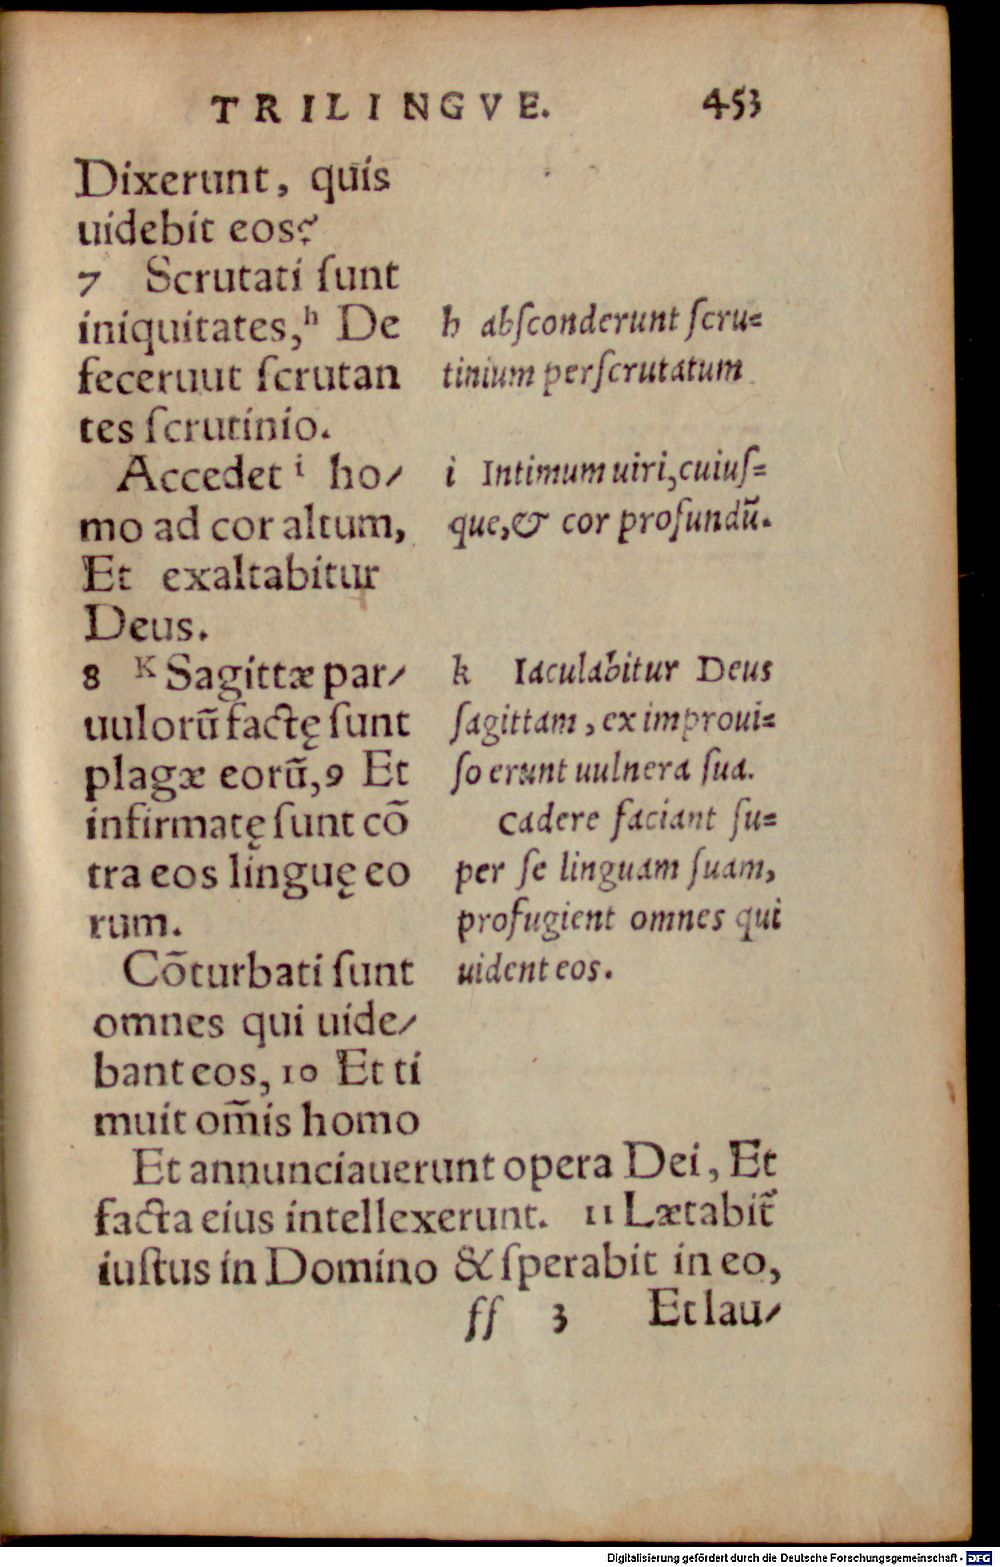 TRILINGVE. 453
Dixerunt, quis
uidebit eos?
7 Scrutati ſunt
iniquitates,ʰ De
feceruut ſcrutan
tes ſcrutinio.
Accedet ⁱ ho/
mo ad cor altum,
Et exaltabitur
Deus.
8 ᴷ Sagittæ par/
uulorũ factę ſunt
plagæ eorũ,9 Et
infirmatę ſunt cõ
tra eos linguę eo
rum.
Cõturbati ſunt
omnes qui uide/
bant eos, 10 Et ti
muit om̃is homo
h abſconderunt ſcru=
tinium perſcrutatum
i Intimum uiri, cuiuſ=
que,& cor profundũ.
k Iaculabitur Deus
ſagittam, ex improui=
ſo erunt uulnera ſua.
cadere faciant ſu=
per ſe linguam ſuam,
profugient omnes qui
uident eos.
Et annunciauerunt opera Dei, Et
facta eius intellexerunt. 11 Lætabit̃
iuſtus in Domino & ſperabit in eo,
ſſ 3 Et lau/
Digitalisierung gefördert durch die Deutsche Forschungsgemeinschaft - DFG